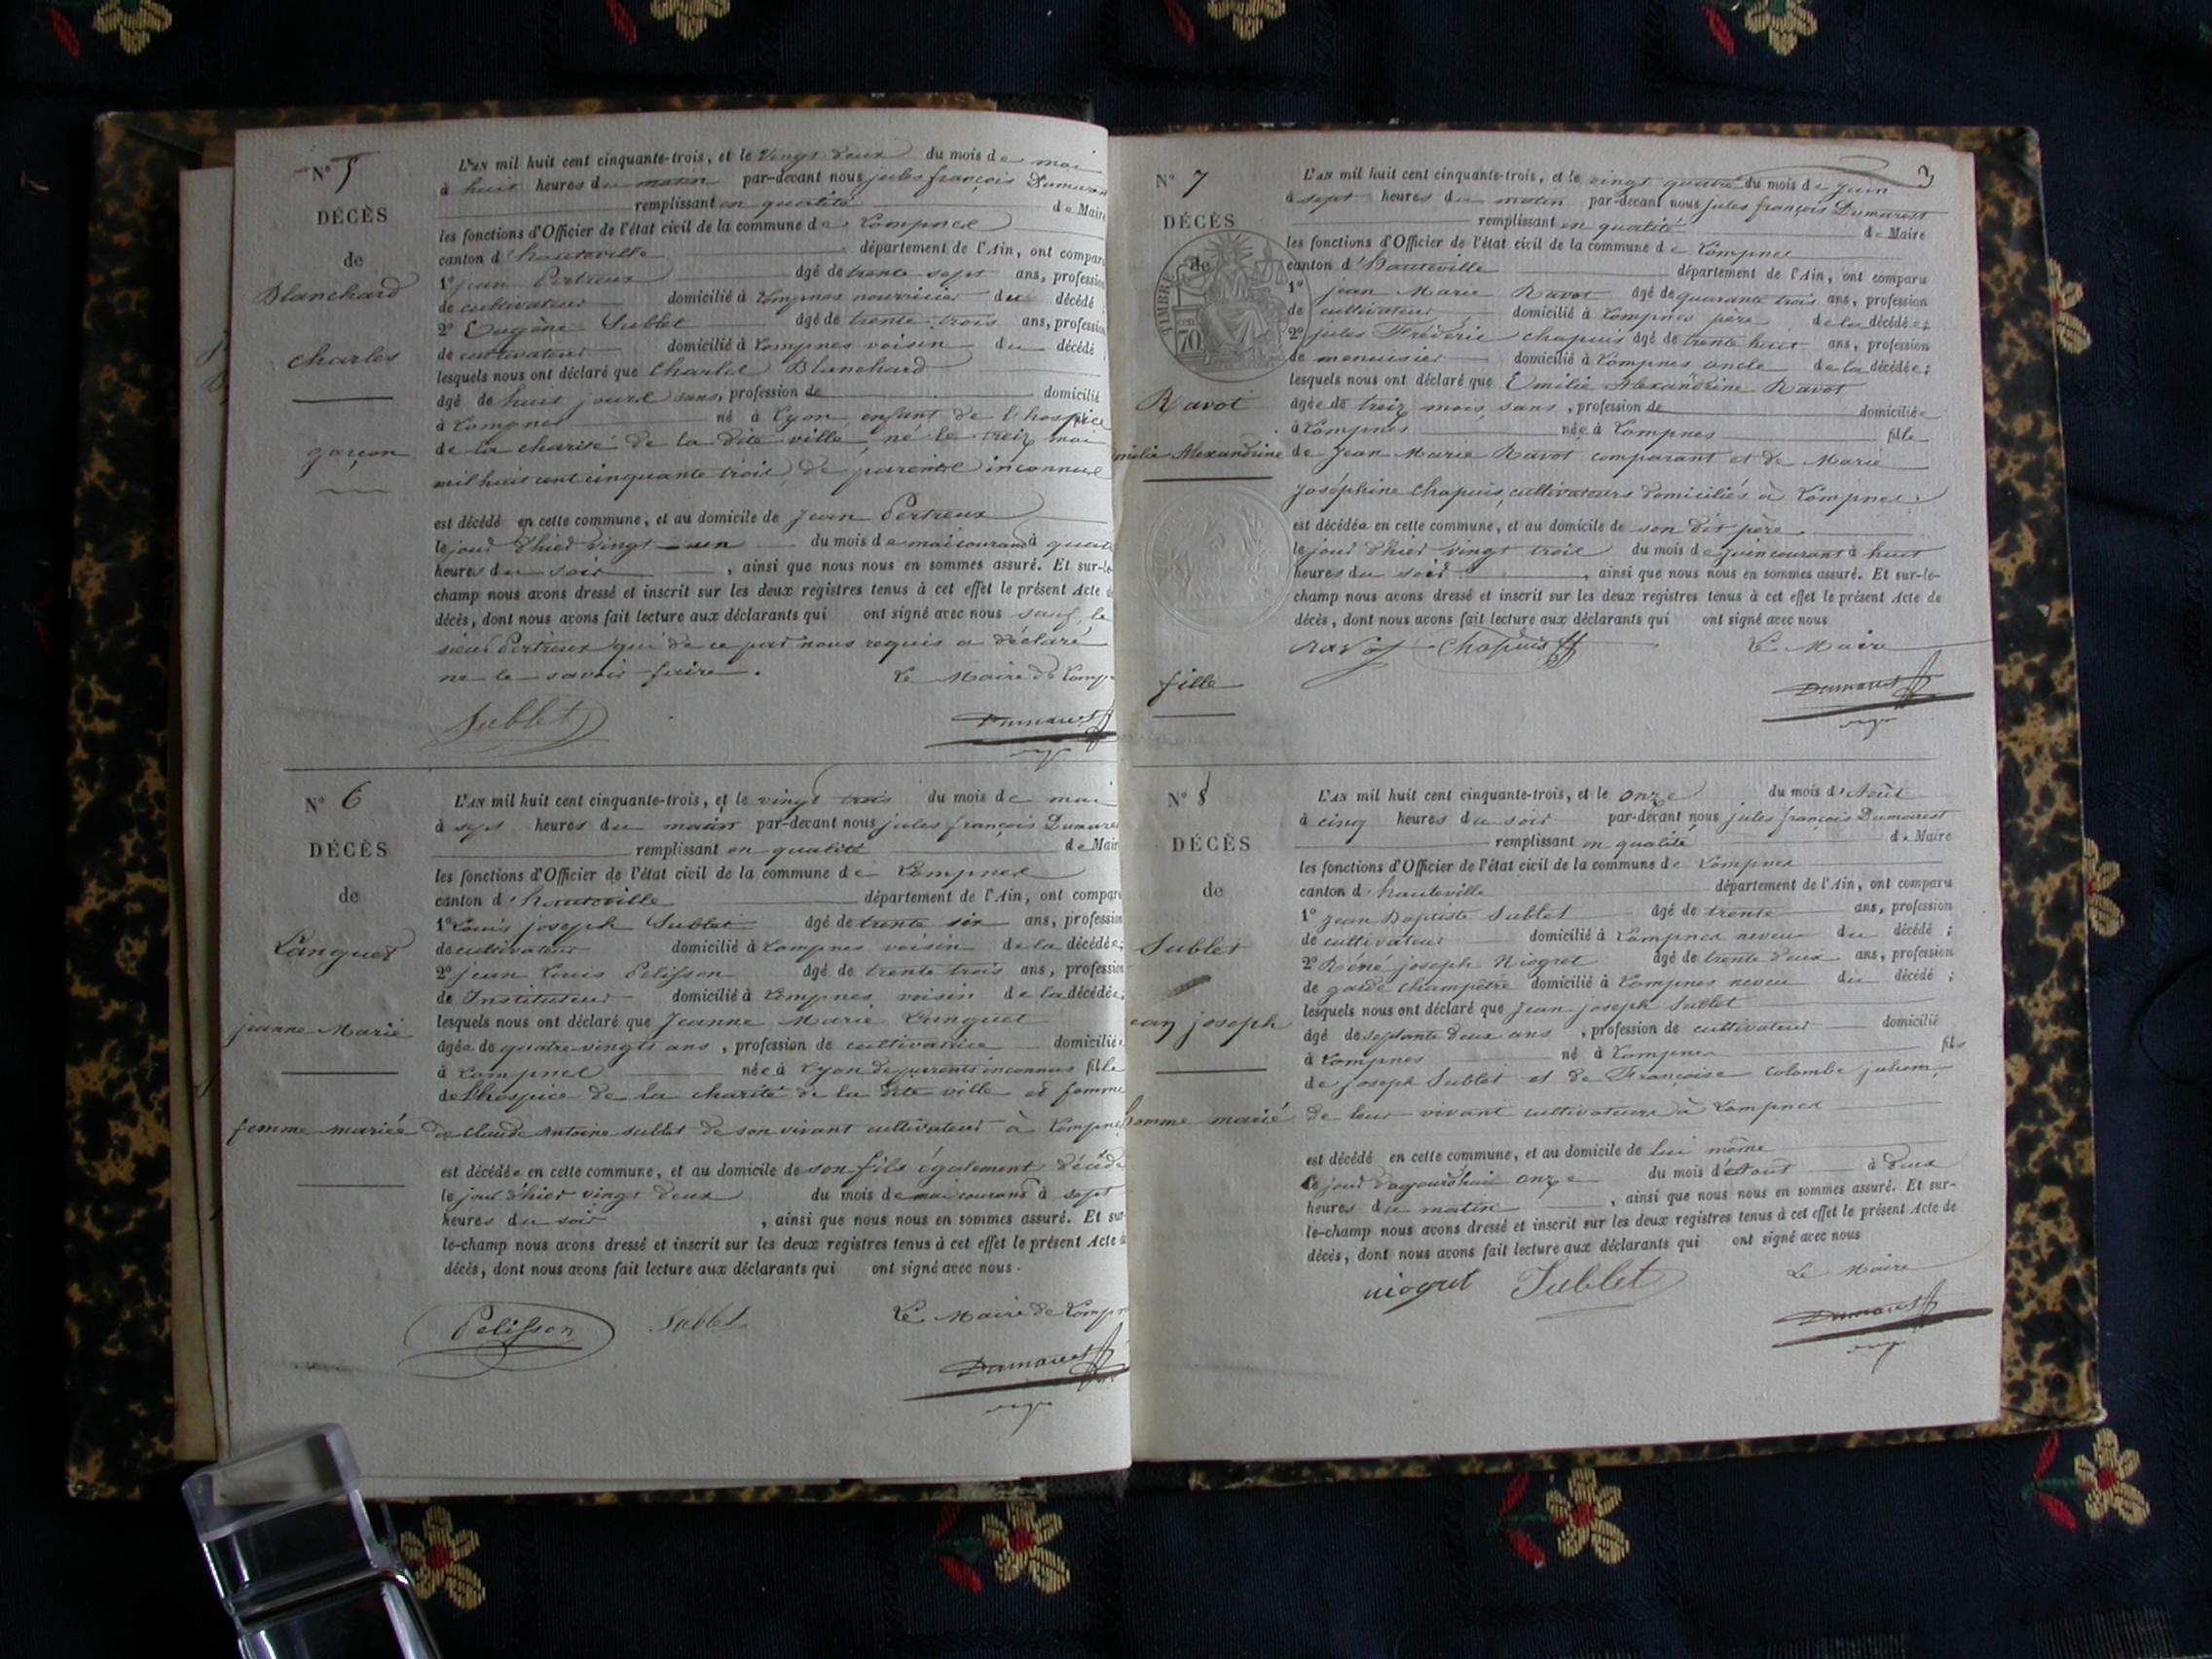 N° 5
DÉCÈS
de
Blanchard
charles
garçon
L'AN mil huit cent cinquante-trois, et le vingt deux du mois de mai
à huit heures du matin par-devant nous jules françois Dumarest
remplissant en qualité de Maire
les fonctions d'Officier de l'état civil de la commune de Lompnes
canton d'hauteville département de l'Ain, ont comparu
1° jean Pertreux âgé de trente sept ans, profession
de cultivateur domicilié à Lompnes nourricier du décédé
2° Eugène Sublet âgé de trente trois ans, profession
de cultivateur domicilié à Lompnes voisin du décédé
lesquels nous ont déclaré que Charles Blanchard
âgé de huit jours sans, profession de domicilié
à Lompnes né à Lyon enfant de l'hospice
de la charité de la dite ville, né le treize mai
mil huit cent cinquante trois, de parents inconnus
est décédé en cette commune, et au domicile de Jean Pertreux
le jour d'hier vingt un du mois de mai courant à quatre
heures du soir, ainsi que nous nous en sommes assuré. Et sur-le-
champ nous avons dressé et inscrit sur les deux registres tenus à cet effet le présent Acte de
décès, dont nous avons fait lecture aux déclarants qui ont signé avec nous sauf le
sieur Pertreux qui de ce par nous requis a déclaré
ne le savoir faire. Le Maire de Lomp
Sublet Dumarest
N° 6
DÉCÈS
de
Languet
jeanne Marie
femme mariée
L'AN mil huit cent cinquante-trois, et le vingt trois du mois de mai
à sept heures du matin par-devant nous jules françois Dumarest
remplissant en qualité de Maire
les fonctions d'Officier de l'état civil de la commune de Lompnes
canton d'hauteville département de l'Ain, ont comparu
1° Louis joseph Sublet âgé de trente six ans, profession
de cultivateur domicilié à Lompnes voisin de la décédée;
2° jean Louis Pelisson âgé de trente trois ans, profession
de Instituteur domicilié à Lompnes voisin de la décédée;
lesquels nous ont déclaré que Jeanne Marie Languet
âgée de quatre-vingts ans, profession de cultivatrice domiciliée
à Lompnes née à Lyon de parents inconnus fille
de l'hospice de la charité de la dite ville et femme
de Claude Antoine Sublet de son vivant cultivateur à Lompnes
est décédée en cette commune, et au domicile de son fils également décédé
le jour d'hier vingt deux du mois de mai courant à sept
heures du soir, ainsi que nous nous en sommes assuré. Et sur
le-champ nous avons dressé et inscrit sur les deux registres tenus à cet effet le présent Acte de
décès, dont nous avons fait lecture aux déclarants qui ont signé avec nous.
Pelisson Sublet Le Maire de Lompn
Dumarest
3
N° 7
DÉCÈS
de
TIMBRE
70
Ravot
milie Alexandrine
fille
L'AN mil huit cent cinquante-trois, et le vingt quatre du mois de Juin
à sept heures du matin par-devant nous jules françois Dumarest
remplissant en qualité de Maire
les fonctions d'Officier de l'état civil de la commune de Lompnes
canton d'Hauteville département de l'Ain, ont comparu
1° jean Marie Ravot âgé de quarante trois ans, profession
de cultivateur domicilié à Lompnes père de la décédée;
2° jules Fréderic chapuis âgé de trente huit ans, profession
de menuisier domicilié à Lompnes oncle de la décédée;
lesquels nous ont déclaré que Emilie Alexandrine Ravot
âgée de treize mois, sans, profession de domiciliée
à Lompnes née à Lompnes fille
de Jean Marie Ravot comparant et de Marie
Joséphine Chapuis, cultivateurs domiciliés à Lompnes.
est décédée en cette commune, et au domicile de son dit père
le jour d'hier vingt trois du mois de juin courant à huit
heures du soir, ainsi que nous nous en sommes assuré. Et sur-le-
champ nous avons dressé et inscrit sur les deux registres tenus à cet effet le présent Acte de
décès, dont nous avons fait lecture aux déclarants qui ont signé avec nous
ravot Chapuis Le Maire
Dumarest
N° 8
DÉCÈS
de
Sublet
ean joseph
homme marié
L'AN mil huit cent cinquante-trois, et le onze du mois d'Août
à cinq heures du soir par-devant nous jules françois Dumarest
remplissant en qualité de Maire
les fonctions d'Officier de l'état civil de la commune de Lompnes
canton d'hauteville département de l'Ain, ont comparu
1° Jean Baptiste Sublet âgé de trente ans, profession
de cultivateur domicilié à Lompnes neveu du décédé;
2° Réné joseph Niogret âgé de trente deux ans, profession
de garde champêtre domicilié à Lompnes neveu du décédé;
lesquels nous ont déclaré que Jean joseph Sublet
âgé de septante deux ans, profession de cultivateur domicilié
à Lompnes né à Lompnes fils
de joseph Sublet et de Françoise Colombe juhem,
de leur vivant cultivateurs à Lompnes
est décédé en cette commune, et au domicile de lui même
le jour d'aujourd'hui onze du mois d'Août à deux
heures du matin, ainsi que nous nous en sommes assuré. Et sur-
le-champ nous avons dressé et inscrit sur les deux registres tenus à cet effet le présent Acte de
décès, dont nous avons fait lecture aux déclarants qui ont signé avec nous
niogret Sublet Le Maire
Dumarest